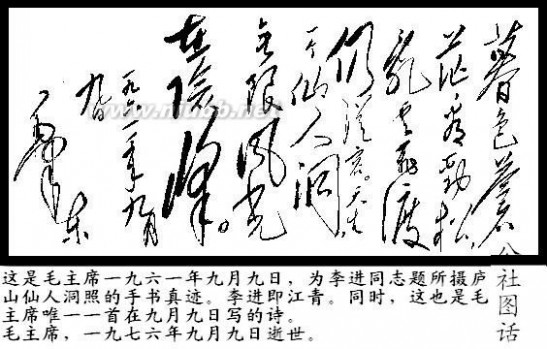 暮色蒼
茫看劲松,
乱云飞渡
仍從容。天生
一个仙人洞
无限风光
在險峰。
一九六一年九月
九日
毛泽东
公社图话
这是毛主席一九六一年九月九日,为李进同志题所摄庐
山仙人洞照的手书真迹。李进即江青。同时,这也是毛
主席唯一一首在九月九日写的诗。
毛主席,一九七六年九月九日逝世。